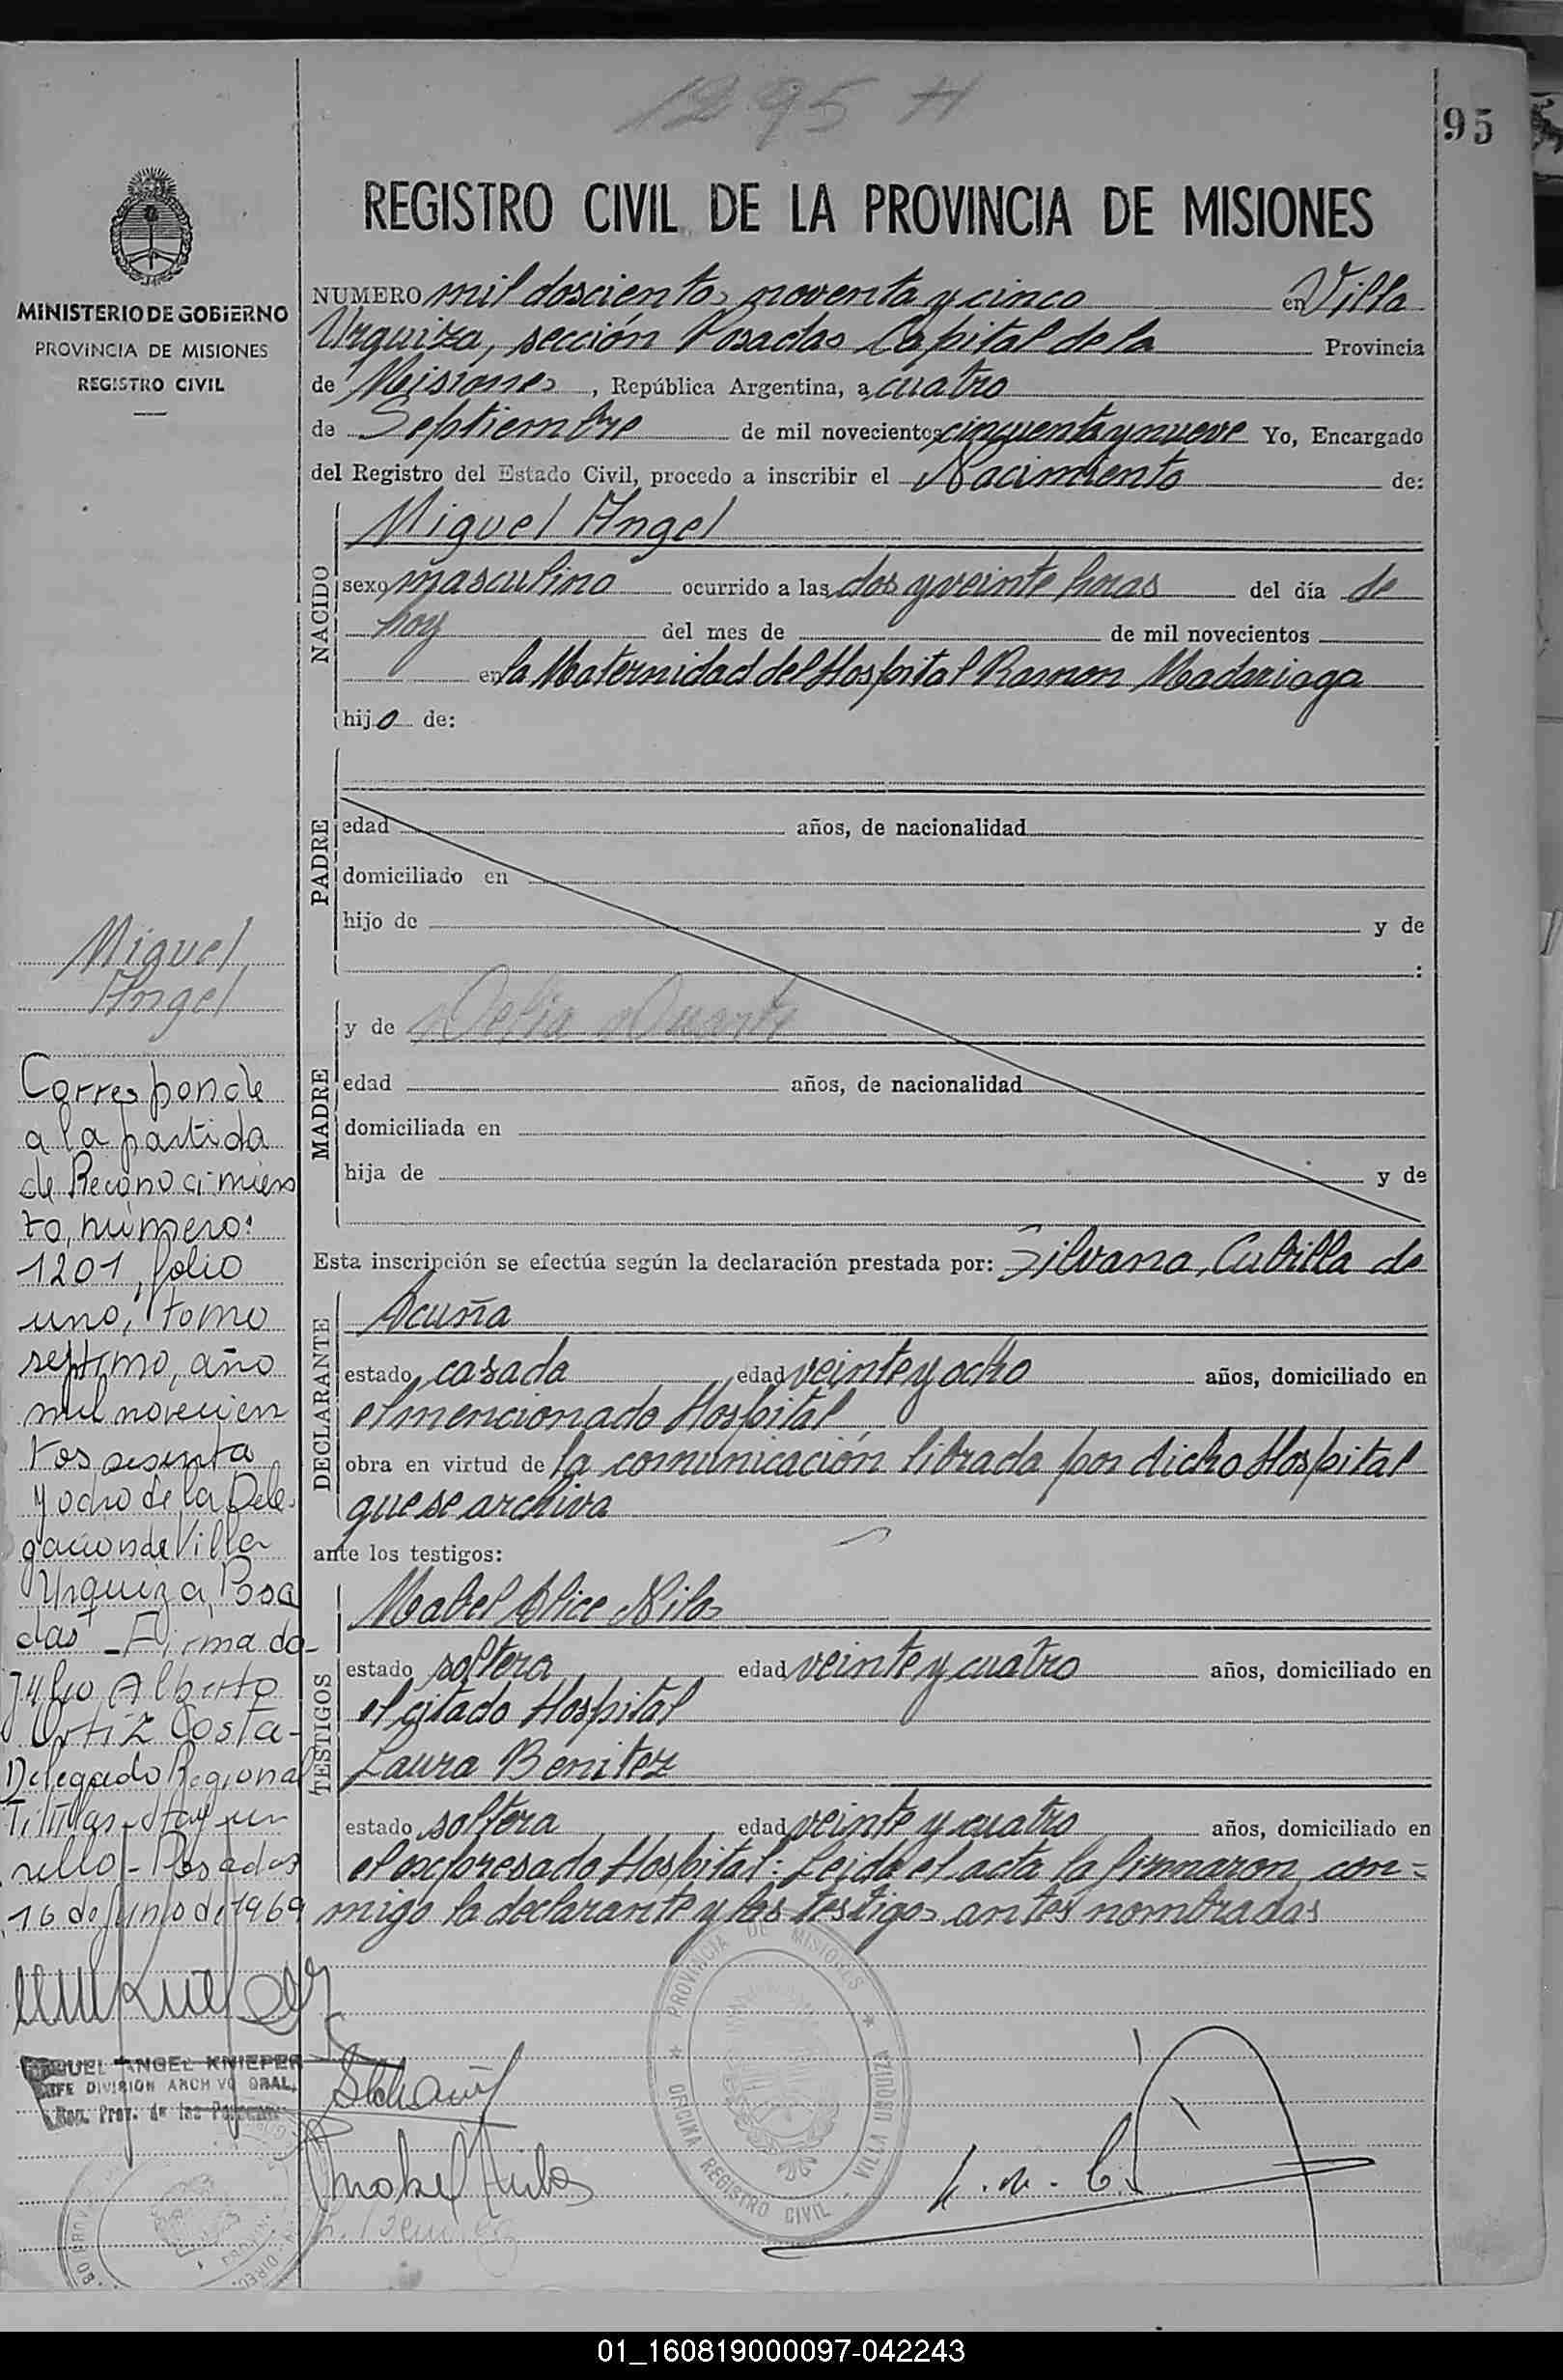 1295 H
95
REGISTRO CIVIL DE LA PROVINCIA DE MISIONES
MINISTERIO DE GOBIERNO
PROVINCIA DE MISIONES
REGISTRO CIVIL
NUMERO mil doscientos noventa y cinco en Villa
Urquiza, sección Posadas Capital de la Provincia
de Misiones, República Argentina, a cuatro
de Septiembre de mil novecientos cincuenta y nueve Yo, Encargado
del Registro del Estado Civil, procedo a inscribir el Nacimiento de:
NACIDO
Miguel Angel
sexo masculino ocurrido a las dos y veinte horas del día de
hoy del mes de de mil novecientos
en la Maternidad del Hospital Ramon Madariaga
hijo de:
PADRE
edad años, de nacionalidad
domiciliado en
hijo de y de
:
MADRE
y de Delia Duarte
edad años, de nacionalidad
domiciliada en
hija de y de
Esta inscripción se efectúa según la declaración prestada por: Silvana, Cubilla de
DECLARANTE
Acuña
estado casada edad veinte y ocho años, domiciliado en
el mencionado Hospital
obra en virtud de la comunicación librada por dicho Hospital
que se archiva
ante los testigos:
TESTIGOS
Mabel Alice Nilos
estado soltera edad veinte y cuatro años, domiciliado en
el citado Hospital
Laura Benitez
estado soltera edad veinte y cuatro años, domiciliado en
el expresado Hospital: Leida el acta la firmaron con=
migo la declarante y las testigos antes nombradas
Miguel
Angel
Corresponde
a la partida
de Reconocimien
to, número:
1201, folio
uno, tomo
septimo, año
mil novecien
tos sesenta
y ocho de la Dele-
gacion de Villa
Urquiza, Posa
das - Firmado-
Julio Alberto
Ortiz Costa-
Delegado Regional
Titular - Hay un
sello - Posadas
16 de Junio de 1969
MIGUEL ANGEL KNIEPER
JEFE DIVISION ARCHIVO GRAL.
PROVINCIA DE MISIONES
OFICINA REGISTRO CIVIL - VILLA URQUIZA
01_160819000097-042243